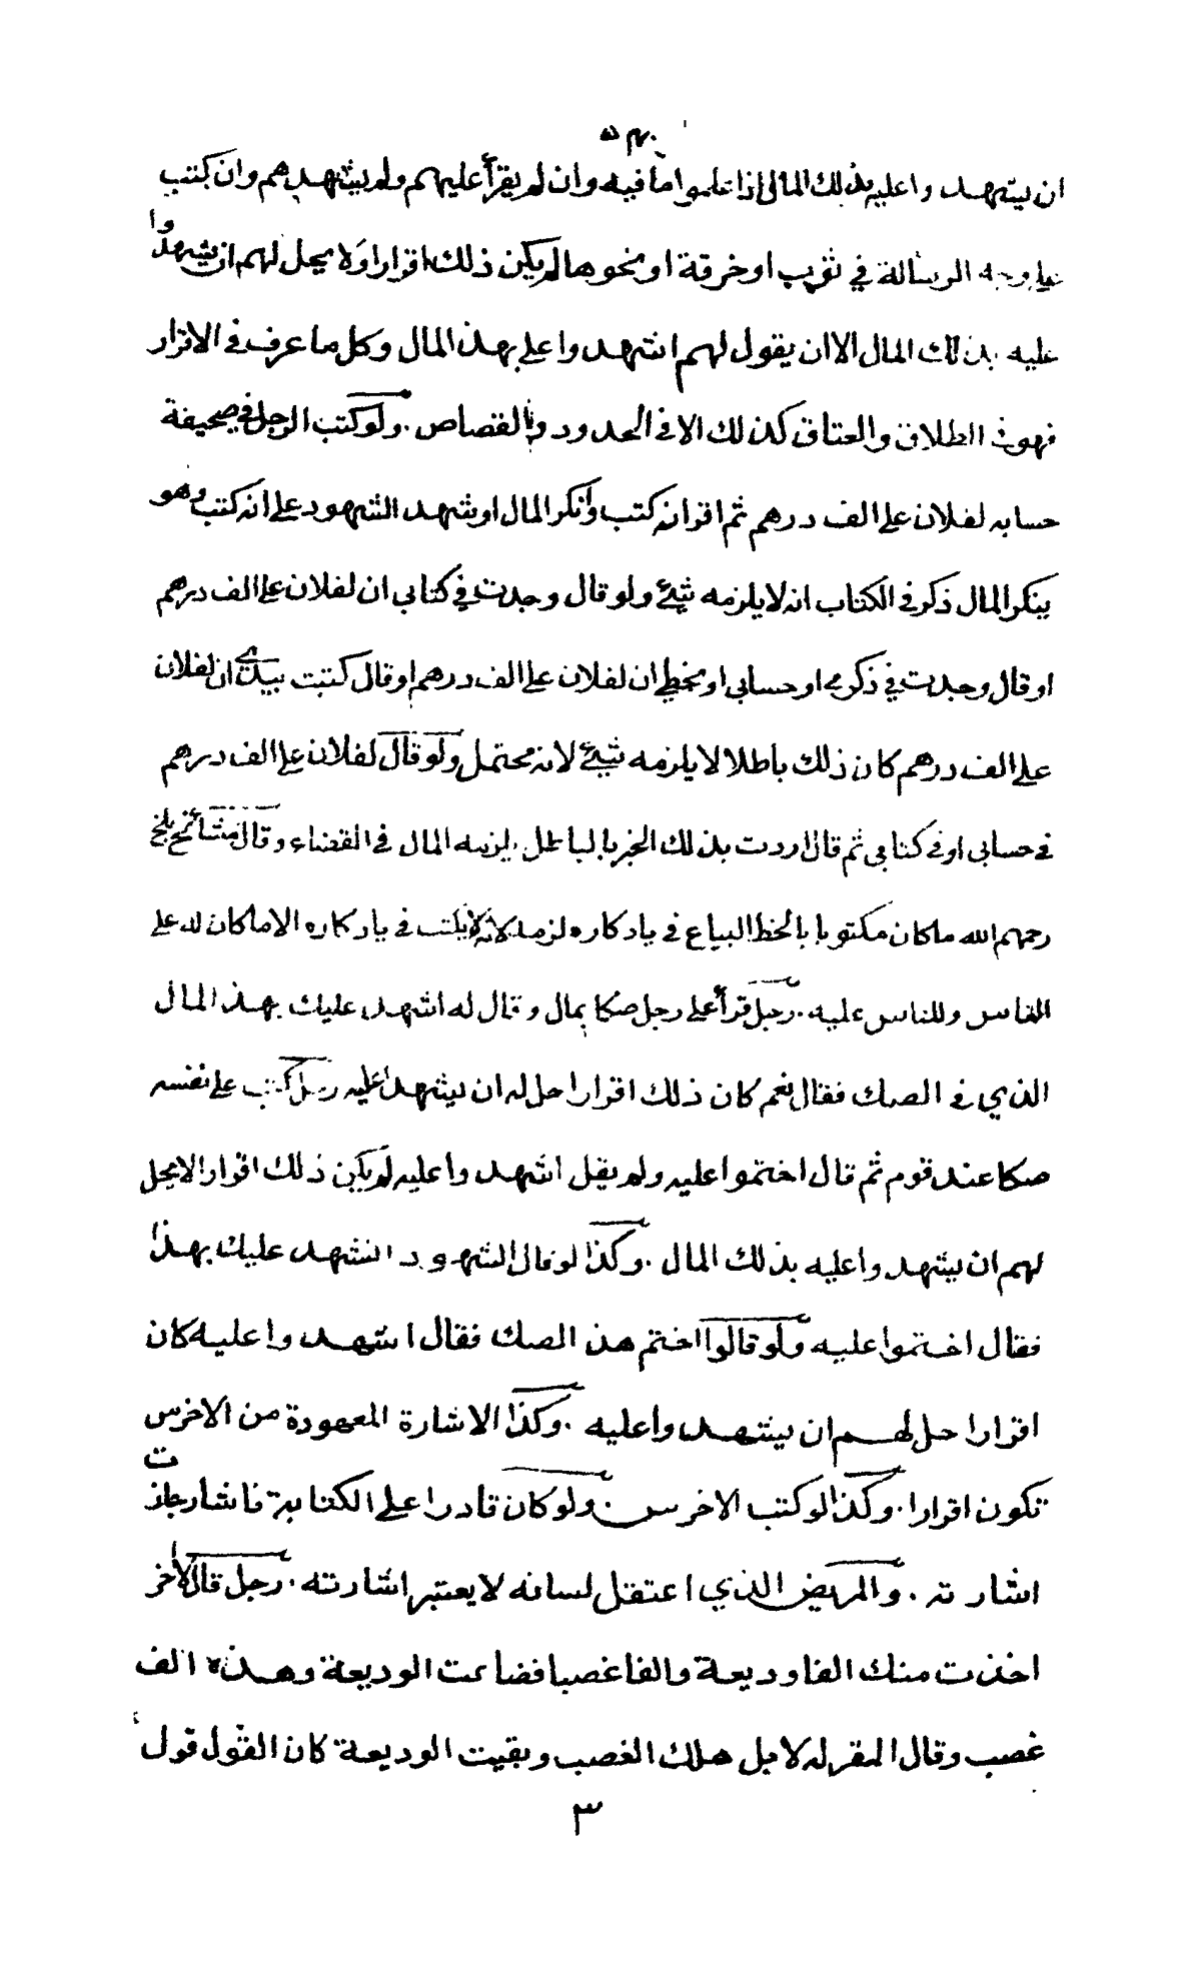 ان يشهدوا عليه بذلك المال اذا علموا ما فيه وان لم يقرأ عليهم ولم يشهدهم وان كتب
على وجه الرسالة في ثوب او خرقة او نحوها لم يكن ذلك اقرارا ولا يحل لهم ان يشهدوا
عليه بذلك المال الا ان يقول لهم اشهدوا على بهذا المال وكل ما عرف في الاقرار
فهو في الطلاق والعتاق كذلك الا في الحدود والقصاص . ولو كتب الرجل في صحيفة
حسابه لفلان على الف درهم ثم اقر انه كتب وانكر المال او شهد الشهود على انه كتب وهو
ينكر المال ذكر في الكتاب انه لا يلزمه شئ ولو قال وجدت في كتابي ان لفلان على الف درهم
او قال وجدت في ذكري او حسابي او بخطي ان لفلان على الف درهم او قال كتبت بيدي ان لفلان
على الف درهم كان ذلك باطلا لا يلزمه شئ لانه محتمل ولو قال لفلان على الف درهم
في حسابي او في كتابي ثم قال اردت بذلك الخبر بالباطل يلزمه المال في القضاء وقال مشائخ بلخ
رحمهم الله ما كان مكتوبا بالخط البياع في يادكاره لزمه لانه لا يكتب في يادكاره الا ما كان له على
الناس وللناس عليه . رجل قرأ على رجل صكا بمال وقال له اشهد عليك بهذا المال
الذي في الصك فقال نعم كان ذلك اقرارا حل له ان يشهد عليه رجل كتب على نفسه
صكا عند قوم ثم قال اختموا عليه ولم يقل اشهدوا عليه لم يكن ذلك اقرارا لا يحل
لهم ان يشهدوا عليه بذلك المال . وكذا لو قال الشهود انشهد عليك بهذا
فقال اختموا عليه ولو قالوا اختم هذا الصك فقال اشهدوا عليه كان
اقرارا حل لهم ان يشهدوا عليه . وكذا الاشارة المعهودة من الاخرس
تكون اقرارا . وكذا لو كتب الاخرس . ولو كان قادرا على الكتابة فاشار جازت
اشارته . والمريض الذي اعتقل لسانه لا يعتبر اشارته . رجل قال لاخر
اخذت منك الفا وديعة والفا غصبا فضاعت الوديعة وهذه الف
غصب وقال المقر له لا بل هلك الغصب وبقيت الوديعة كان القول قول
٣